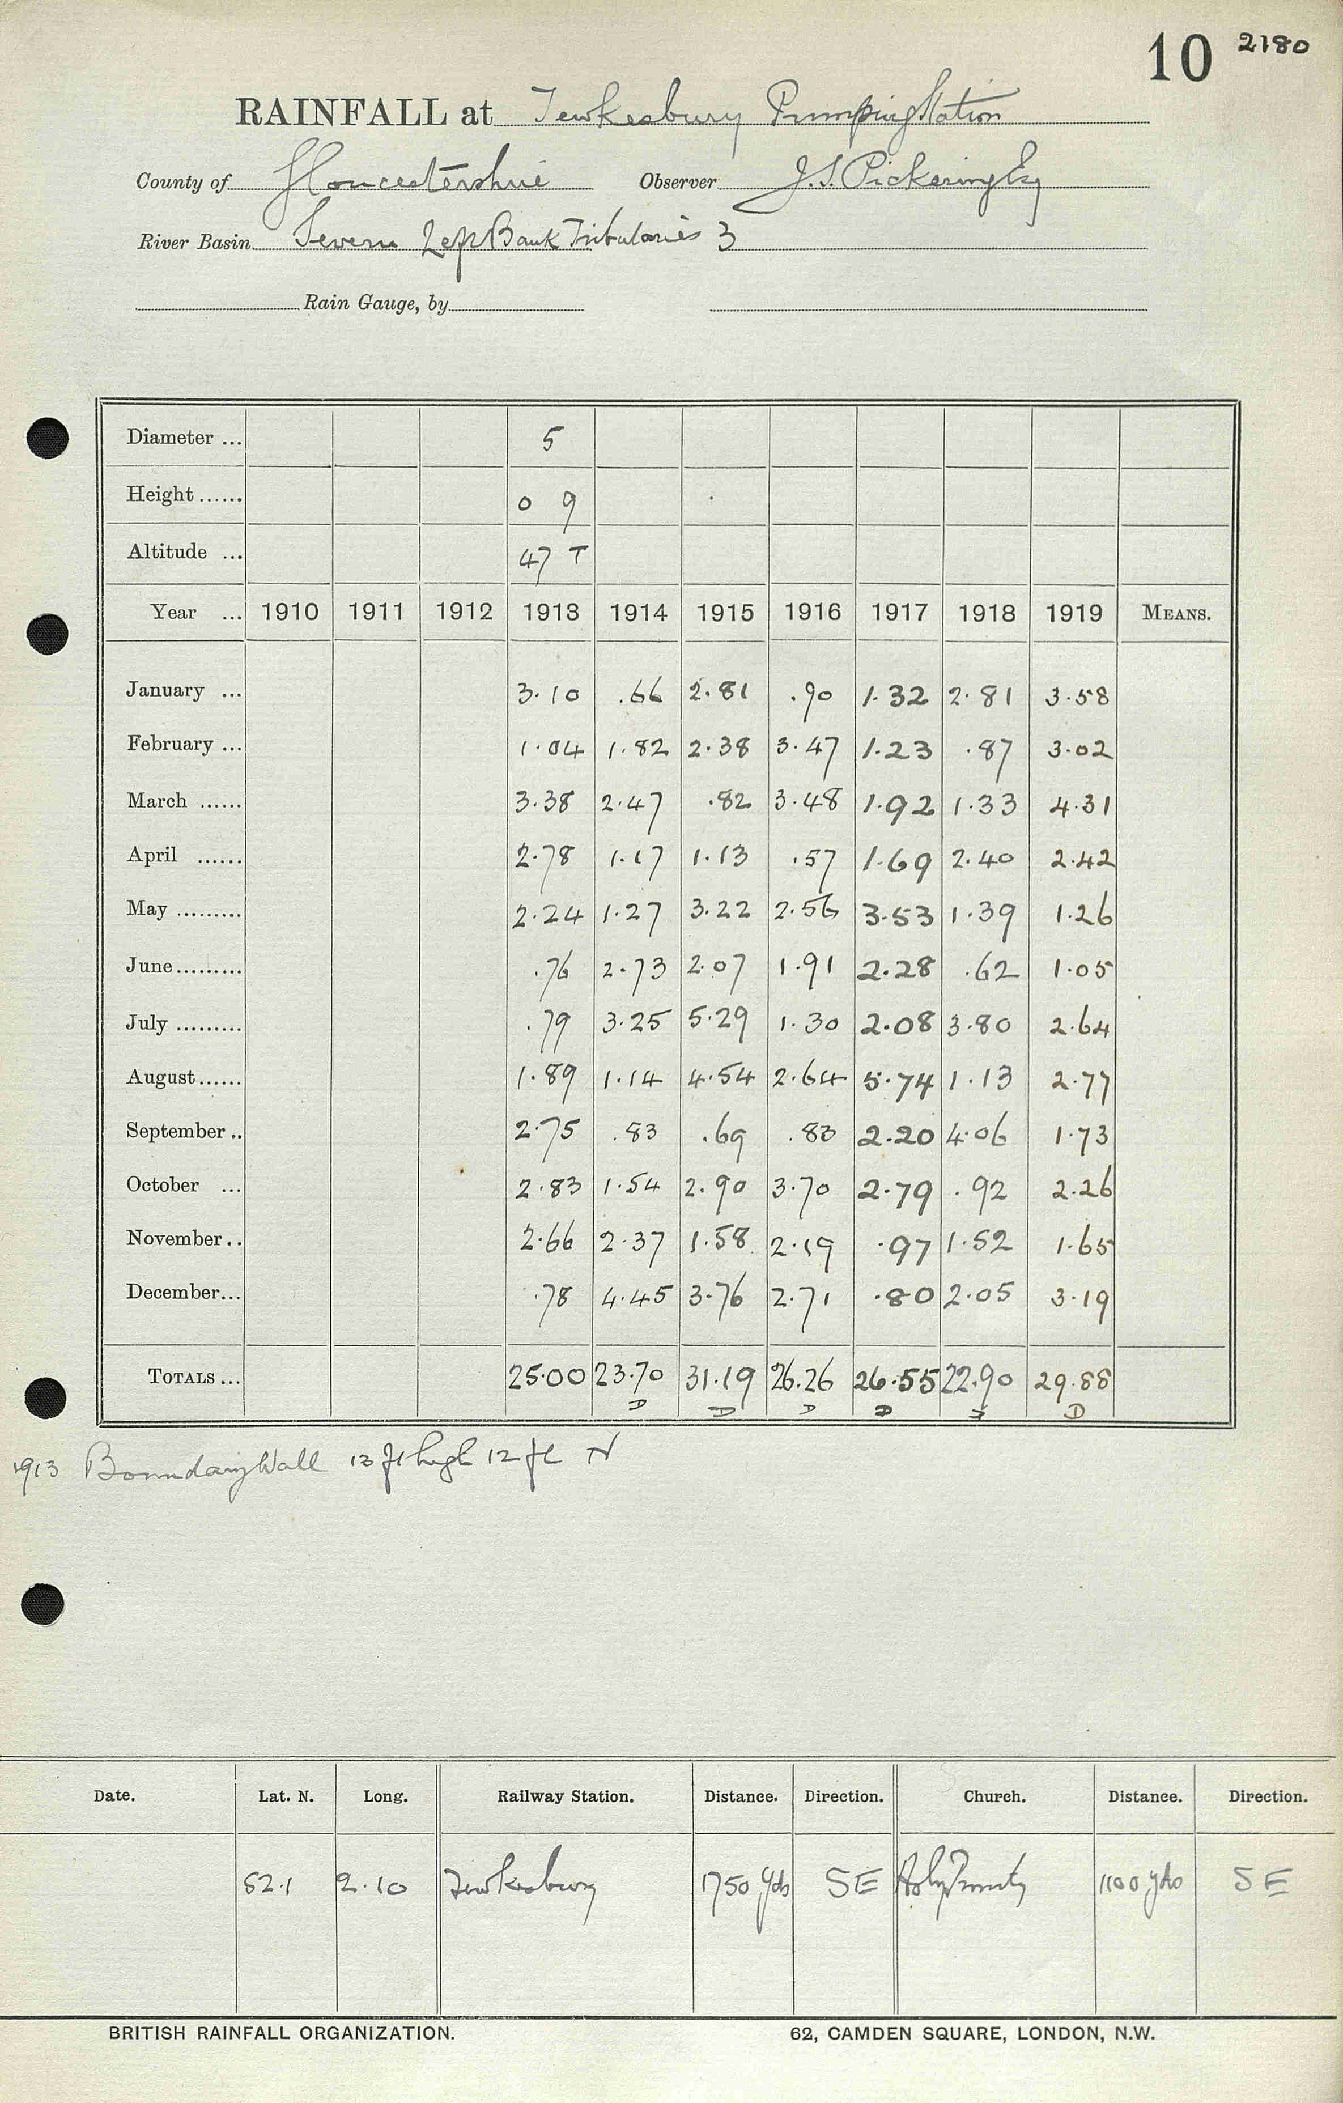 10 2180
RAINFALL at Tewkesbury Pumping Station
County of Gloucestershire Observer J.S. Pickering Esq
River Basin Severn Left Bank Tributaries 3
Rain Gauge, by
Diameter ... 5
Height ...... 0 9
Altitude ... 47 T
Year ... 1910 1911 1912 1913 1914 1915 1916 1917 1918 1919 MEANS.
January ... 3.10 .66 2.81 .90 1.32 2.81 3.58
February ... 1.04 1.82 2.38 3.47 1.23 .87 3.02
March ...... 3.38 2.47 .82 3.48 1.92 1.33 4.31
April ...... 2.78 1.17 1.13 .57 1.69 2.40 2.42
May ......... 2.24 1.27 3.22 2.56 3.53 1.39 1.26
June......... .76 2.73 2.07 1.91 2.28 .62 1.05
July ......... .79 3.25 5.29 1.30 2.08 3.80 2.64
August...... 1.89 1.14 4.54 2.64 5.74 1.13 2.77
September .. 2.75 .83 .69 .83 2.20 4.06 1.73
October ... 2.83 1.54 2.90 3.70 2.79 .92 2.26
November.. 2.66 2.37 1.58 2.19 .97 1.52 1.65
December... .78 4.45 3.76 2.71 .80 2.05 3.19
TOTALS ... 25.00 23.70 31.19 26.26 26.55 22.90 29.88
D D D D D
1913 Boundary Wall 13 ft high 12 ft N
Date. Lat. N. Long. Railway Station. Distance. Direction. Church. Distance. Direction.
52.1 2.10 Tewkesbury 1750 yds SE Holy Trinity 1100 yds SE
BRITISH RAINFALL ORGANIZATION. 62, CAMDEN SQUARE, LONDON, N.W.